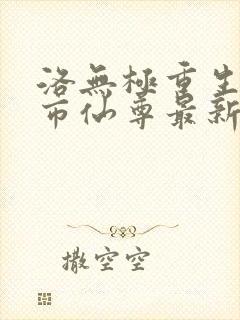 洛無極重生
市仙尊最新
撒空空